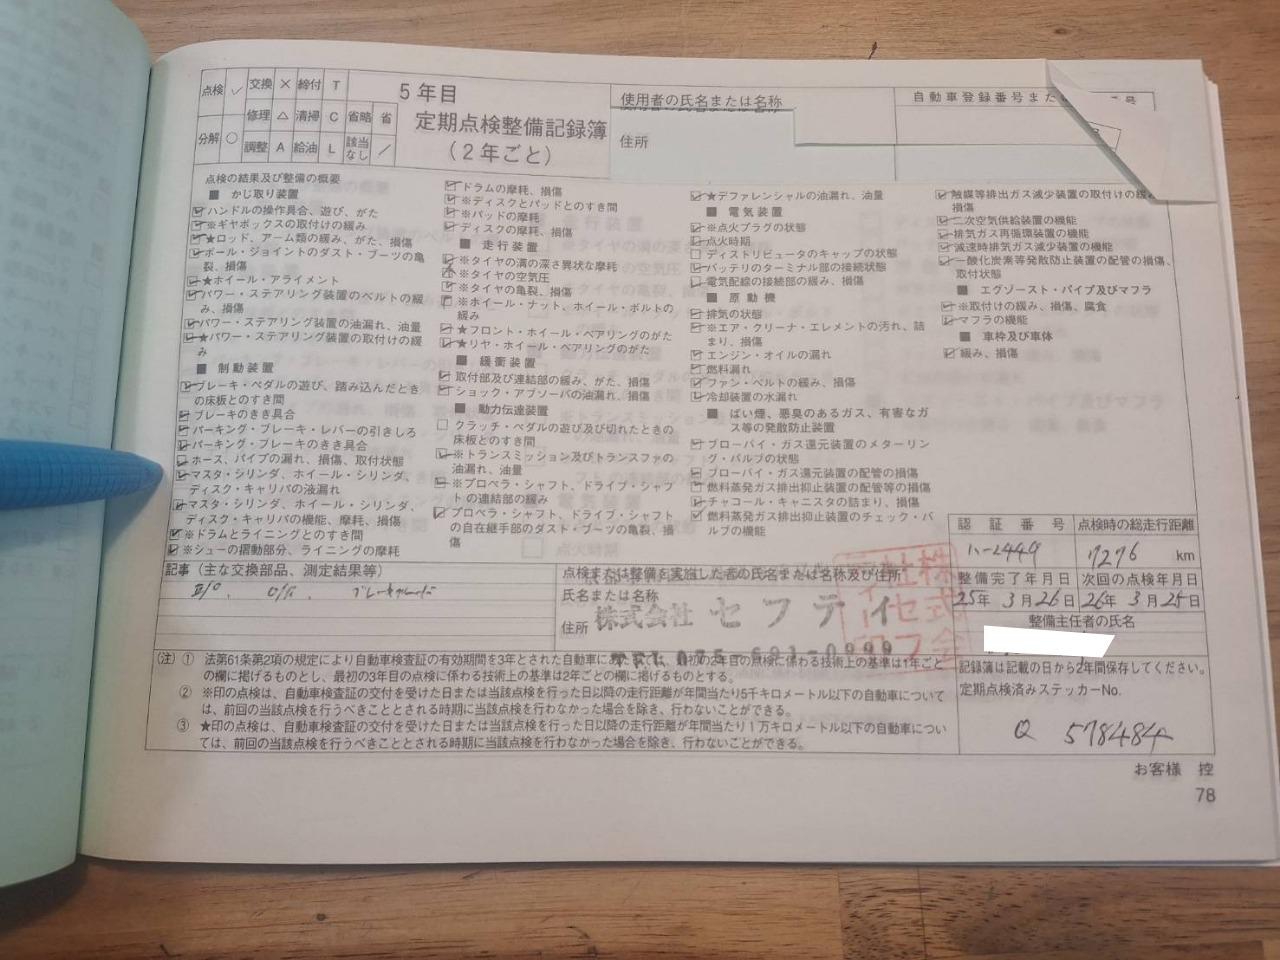 点検 レ 交換 × 締付 T
修理 △ 清掃 C 省略 省
分解 ○ 調整 A 給油 L 該当なし ／
5年目
定期点検整備記録簿
（2年ごと）
使用者の氏名または名称
住所
自動車登録番号また
号
点検の結果及び整備の概要
■ かじ取り装置
ハンドルの操作具合、遊び、がた
※ギヤボックスの取付けの緩み
★ロッド、アーム類の緩み、がた、損傷
ボール・ジョイントのダスト・ブーツの亀
裂、損傷
★ホイール・アライメント
パワー・ステアリング装置のベルトの緩
み、損傷
パワー・ステアリング装置の油漏れ、油量
★パワー・ステアリング装置の取付けの緩
み
■ 制動装置
ブレーキ・ペダルの遊び、踏み込んだとき
の床板とのすき間
ブレーキのきき具合
パーキング・ブレーキ・レバーの引きしろ
パーキング・ブレーキのきき具合
ホース、パイプの漏れ、損傷、取付状態
マスタ・シリンダ、ホイール・シリンダ、
ディスク・キャリパの液漏れ
マスタ・シリンダ、ホイール・シリンダ、
ディスク・キャリパの機能、摩耗、損傷
※ドラムとライニングとのすき間
※シューの摺動部分、ライニングの摩耗
ドラムの摩耗、損傷
※ディスクとパッドとのすき間
※パッドの摩耗
ディスクの摩耗、損傷
■ 走行装置
※タイヤの溝の深さ異状な摩耗
※タイヤの空気圧
※タイヤの亀裂、損傷
※ホイール・ナット、ホイール・ボルトの
緩み
★フロント・ホイール・ベアリングのがた
★リヤ・ホイール・ベアリングのがた
■ 緩衝装置
取付部及び連結部の緩み、がた、損傷
ショック・アブソーバの油漏れ、損傷
■ 動力伝達装置
クラッチ・ペダルの遊び及び切れたときの
床板とのすき間
※トランスミッション及びトランスファの
油漏れ、油量
※プロペラ・シャフト、ドライブ・シャフ
トの連結部の緩み
プロペラ・シャフト、ドライブ・シャフト
の自在継手部のダスト・ブーツの亀裂、損
傷
★デファレンシャルの油漏れ、油量
■ 電気装置
※点火プラグの状態
点火時期
ディストリビュータのキャップの状態
バッテリのターミナル部の接続状態
電気配線の接続部の緩み、損傷
■ 原動機
排気の状態
※エア・クリーナ・エレメントの汚れ、詰
まり、損傷
エンジン・オイルの漏れ
燃料漏れ
ファン・ベルトの緩み、損傷
冷却装置の水漏れ
■ ばい煙、悪臭のあるガス、有害なガ
ス等の発散防止装置
ブローバイ・ガス還元装置のメターリン
グ・バルブの状態
ブローバイ・ガス還元装置の配管の損傷
燃料蒸発ガス排出抑止装置の配管等の損傷
チャコール・キャニスタの詰まり、損傷
燃料蒸発ガス排出抑止装置のチェック・バ
ルブの機能
触媒等排出ガス減少装置の取付けの緩み、
損傷
二次空気供給装置の機能
排気ガス再循環装置の機能
減速時排気ガス減少装置の機能
一酸化炭素等発散防止装置の配管の損傷、
取付状態
■ エグゾースト・パイプ及びマフラ
※取付けの緩み、損傷、腐食
マフラの機能
■ 車枠及び車体
緩み、損傷
認証番号 点検時の総走行距離
ハ-2449 7276 km
整備完了年月日 次回の点検年月日
25年 3月26日 26年 3月25日
整備主任者の氏名
記事（主な交換部品、測定結果等）
点検または整備を実施した者の氏名または名称及び住所
氏名または名称
株式会社 セフティ
住所
TEL 075-691-0999
（注）① 法第61条第2項の規定により自動車検査証の有効期間を3年とされた自動車にあっては、最初の2年目の点検に係わる技術上の基準は1年ごと
の欄に掲げるものとし、最初の3年目の点検に係わる技術上の基準は2年ごとの欄に掲げるものとする。
② ※印の点検は、自動車検査証の交付を受けた日または当該点検を行った日以降の走行距離が年間当たり5千キロメートル以下の自動車について
は、前回の当該点検を行うべきこととされる時期に当該点検を行わなかった場合を除き、行わないことができる。
③ ★印の点検は、自動車検査証の交付を受けた日または当該点検を行った日以降の走行距離が年間当たり1万キロメートル以下の自動車につい
ては、前回の当該点検を行うべきこととされる時期に当該点検を行わなかった場合を除き、行わないことができる。
記録簿は記載の日から2年間保存してください。
定期点検済みステッカーNo.
Q 578484
お客様 控
78